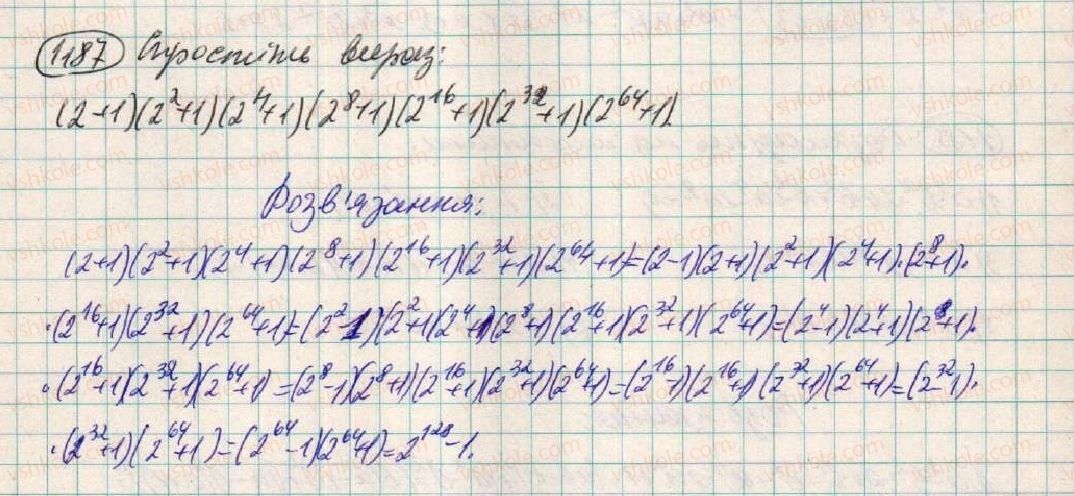 1187 Спростіть вираз:
(2+1)(2²+1)(2⁴+1)(2⁸+1)(2¹⁶+1)(2³²+1)(2⁶⁴+1).
Розв'язання:
(2+1)(2²+1)(2⁴+1)(2⁸+1)(2¹⁶+1)(2³²+1)(2⁶⁴+1)=(2-1)(2+1)(2²+1)(2⁴+1)·(2⁸+1)·
·(2¹⁶+1)(2³²+1)(2⁶⁴+1)=(2²-1)(2²+1)(2⁴+1)(2⁸+1)(2¹⁶+1)(2³²+1)(2⁶⁴+1)=(2⁴-1)(2⁴+1)(2⁸+1)·
·(2¹⁶+1)(2³²+1)(2⁶⁴+1)=(2⁸-1)(2⁸+1)(2¹⁶+1)(2³²+1)(2⁶⁴+1)=(2¹⁶-1)(2¹⁶+1)(2³²+1)(2⁶⁴+1)=(2³²-1)·
·(2³²+1)(2⁶⁴+1)=(2⁶⁴-1)(2⁶⁴+1)=2¹²⁸-1.